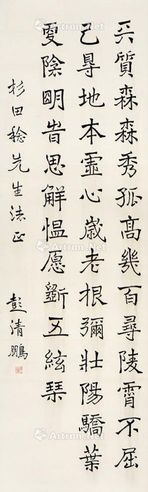 兲質森森秀孤高幾百尋陵霄不屈
己㝵地本虗心歲老根彌壯陽驕葉
叓陰明旹思解愠愿斵五絃琴
杉田稔先生法正
彭清鵬